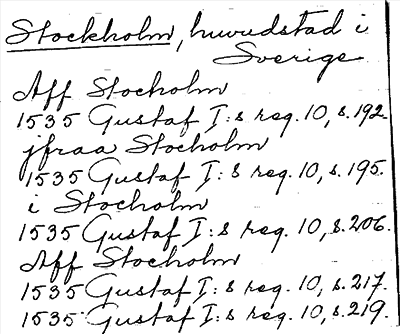 Stockholm, huvudstad i
Sverige
Aff Stocholm
1535 Gustaf I:s reg. 10, s.192.
jfraa Stocholm
1535 Gustaf I:s reg. 10, s.195.
i Stocholm
1535 Gustaf I:s reg. 10, s.206.
Aff Stocholm
1535 Gustaf I:s reg. 10, s.217.
1535 Gustaf I:s reg. 10, s.219.